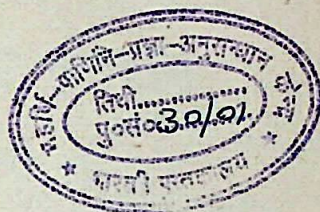 महर्षि-पाणिनि-प्रज्ञा-अनुसन्धान केन्द्र
तिथी..................
पु०सं० 30/01